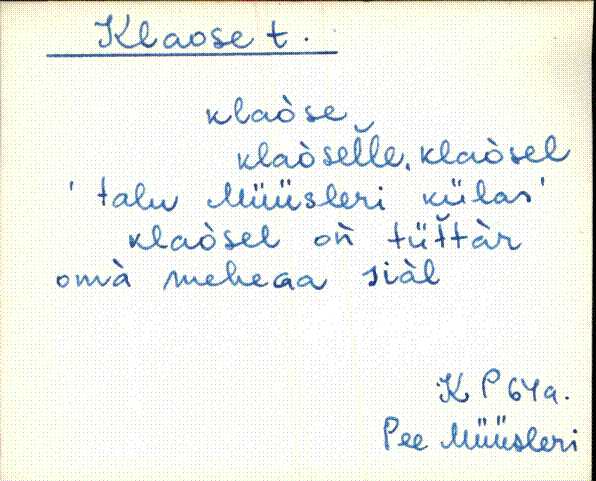 Klaose t.
klaòse
klaòsel̆l̆e, klaòsel
' talu Müüsleri külas'
klaòsel oǹ tüt̆t̆àr
omà mehegaa siàl
K P 64a.
Pee Müüsleri